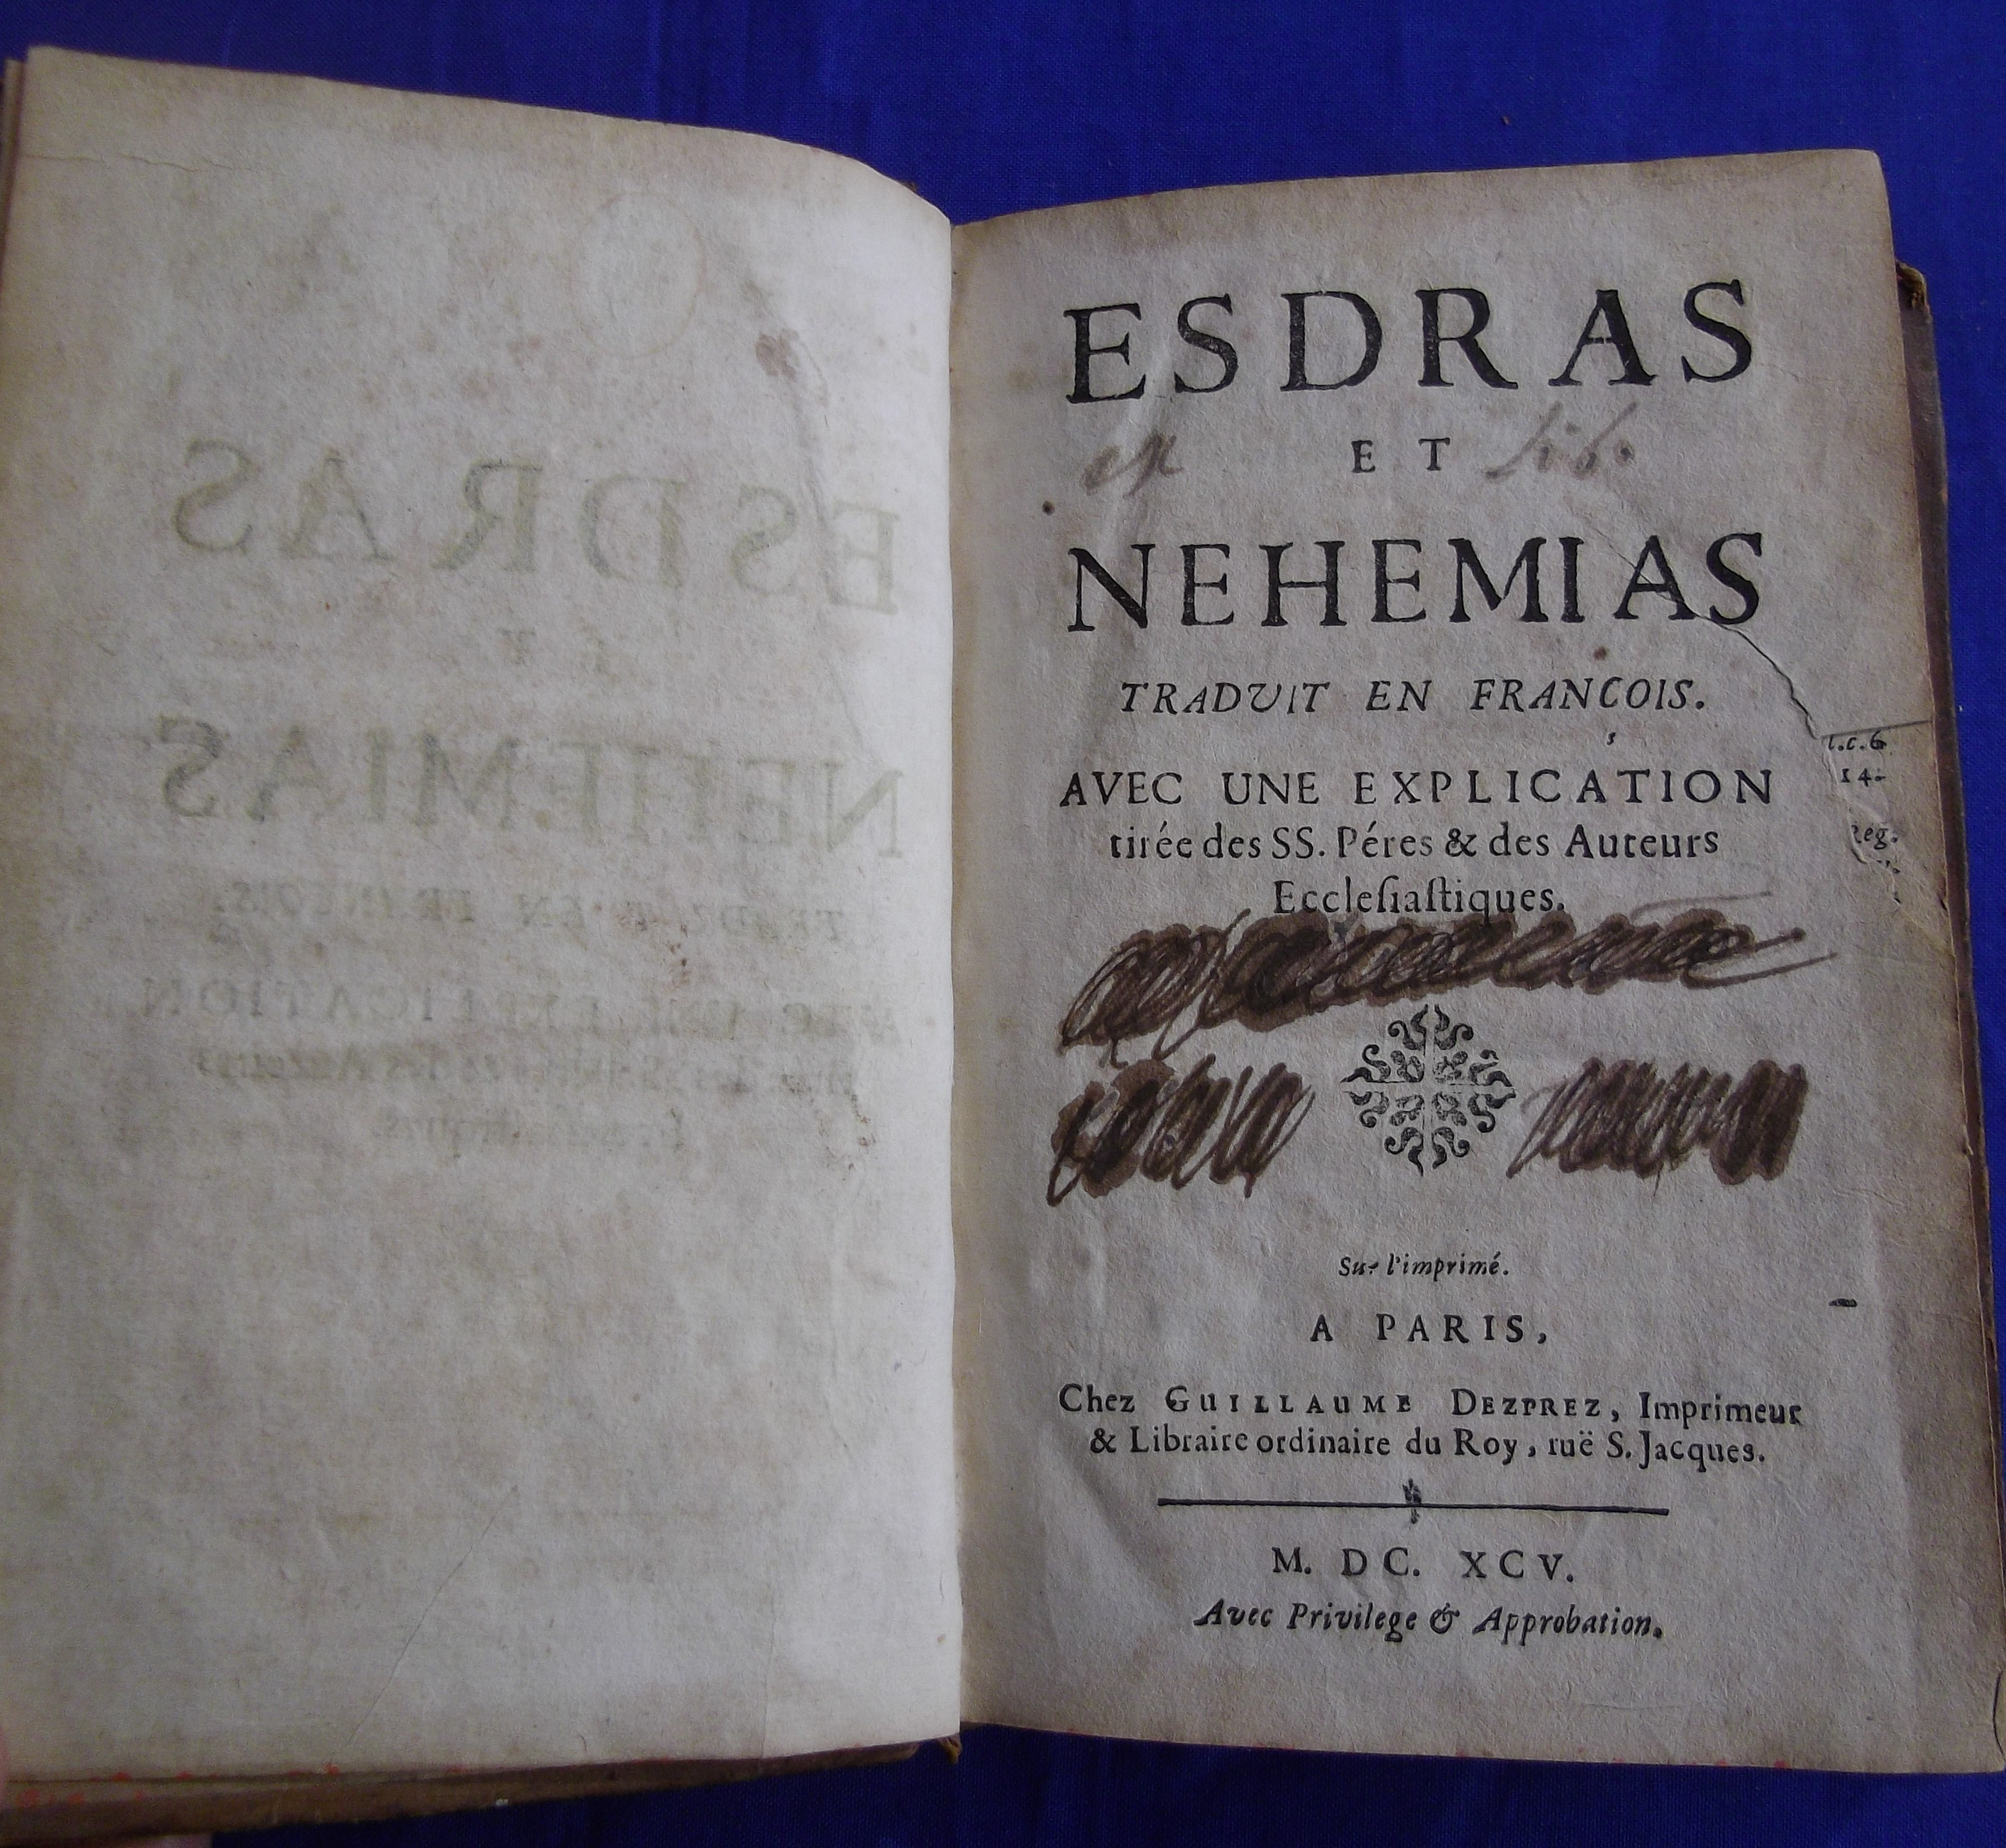 ESDRAS
ex ET lib.
NEHEMIAS
TRADUIT EN FRANCOIS.
AVEC UNE EXPLICATION
tirée des SS. Péres & des Auteurs
Eccleſiaſtiques.
Sur l'imprimé.
A PARIS,
Chez GUILLAUME DEZPREZ, Imprimeur
& Libraire ordinaire du Roy, ruë S. Jacques.
M. DC. XCV.
Avec Privilege & Approbation.
l.c.6
14.
Reg.